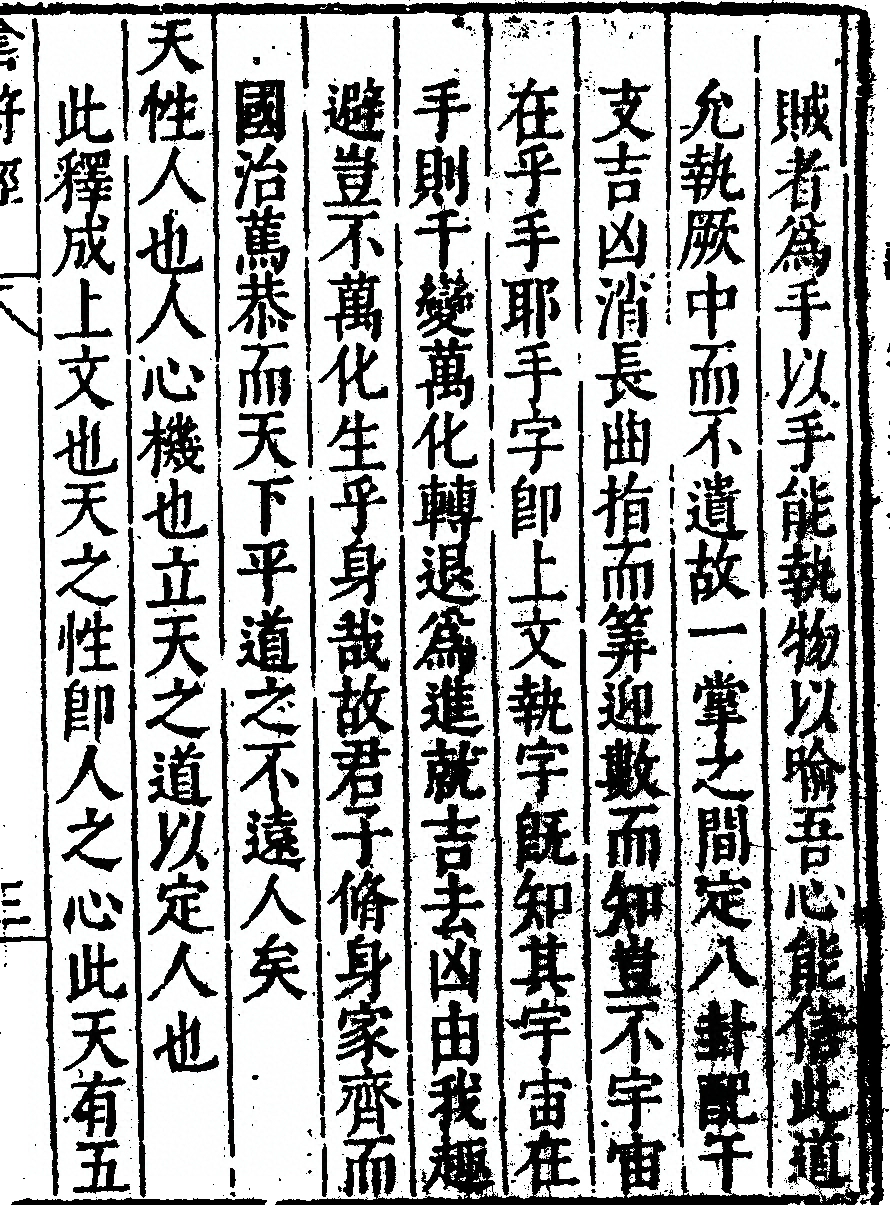 賊者爲手以手能執物以喻吾心能信此道
允執厥中而不遺故一掌之間定八卦配干
支吉凶消長曲指而筭迎數而知豈不宇宙
在乎手耶手字卽上文執字旣知其宇宙在
手則千變萬化轉退爲進就吉去凶由我趣
避豈不萬化生乎身哉故君子脩身家齊而
國治篤恭而天下平道之不遠人矣
天性人也人心機也立天之道以定人也
此釋成上文也天之性卽人之心此天有五
三